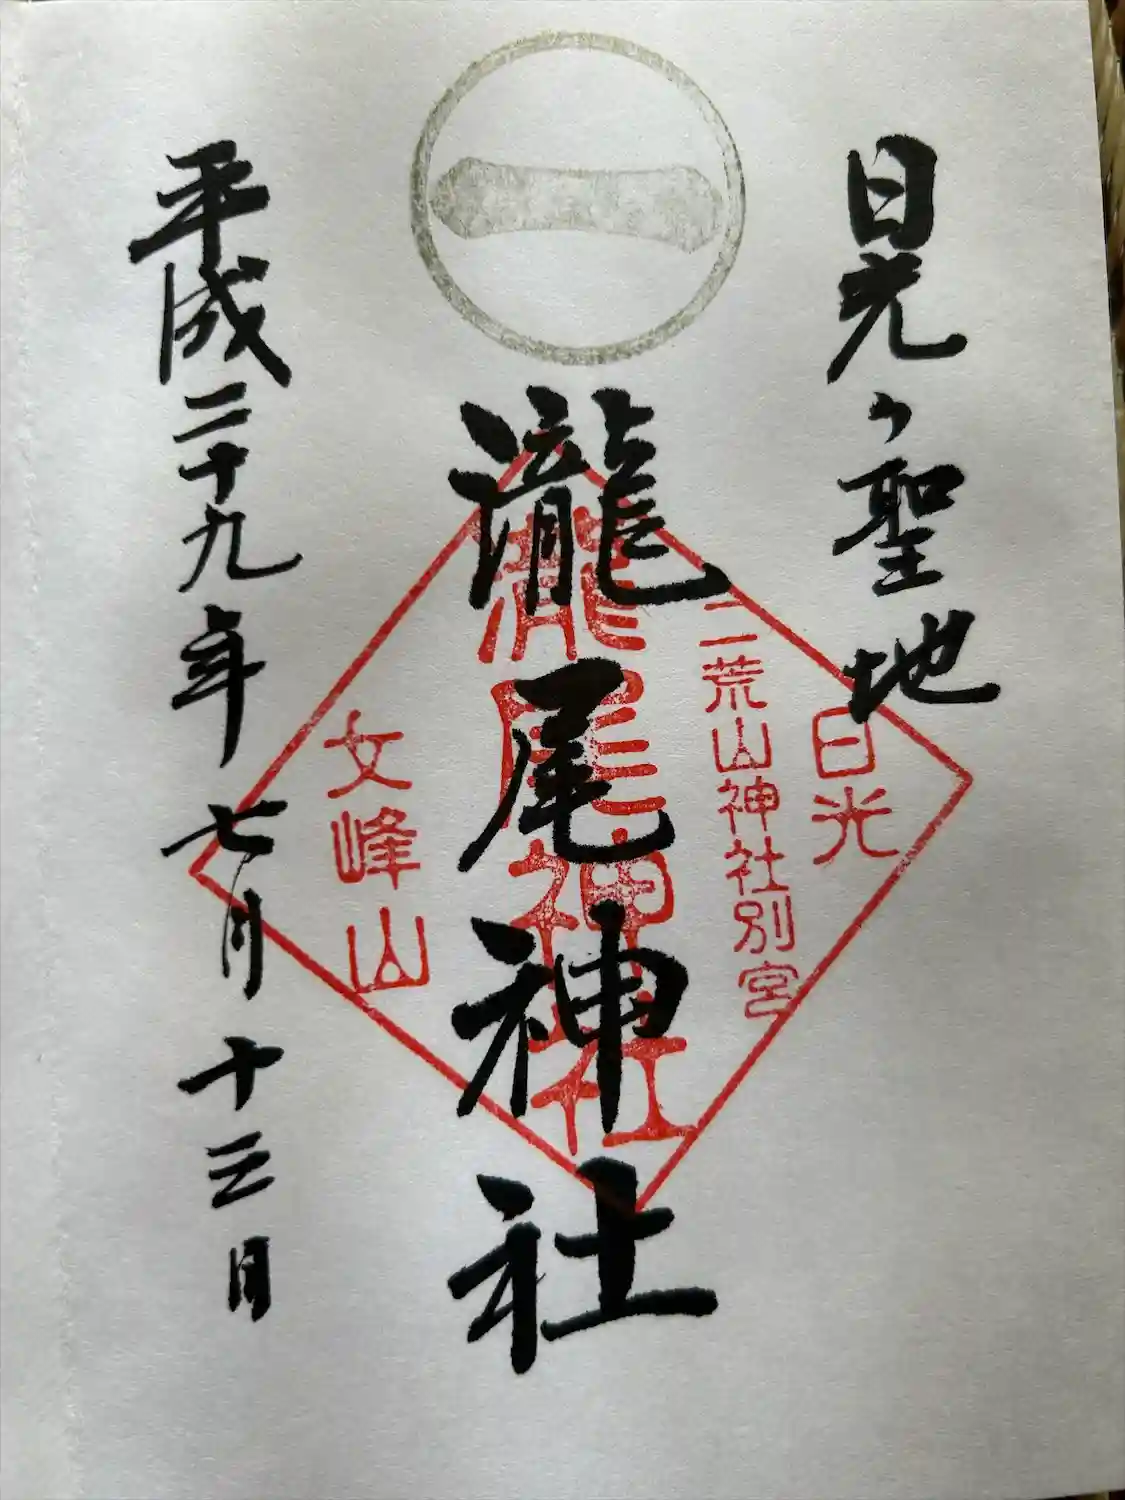 一
日光ヶ聖地
瀧尾神社
平成二十九年七月十三日
日光
二荒山神社別宮
瀧尾神社
女峰山